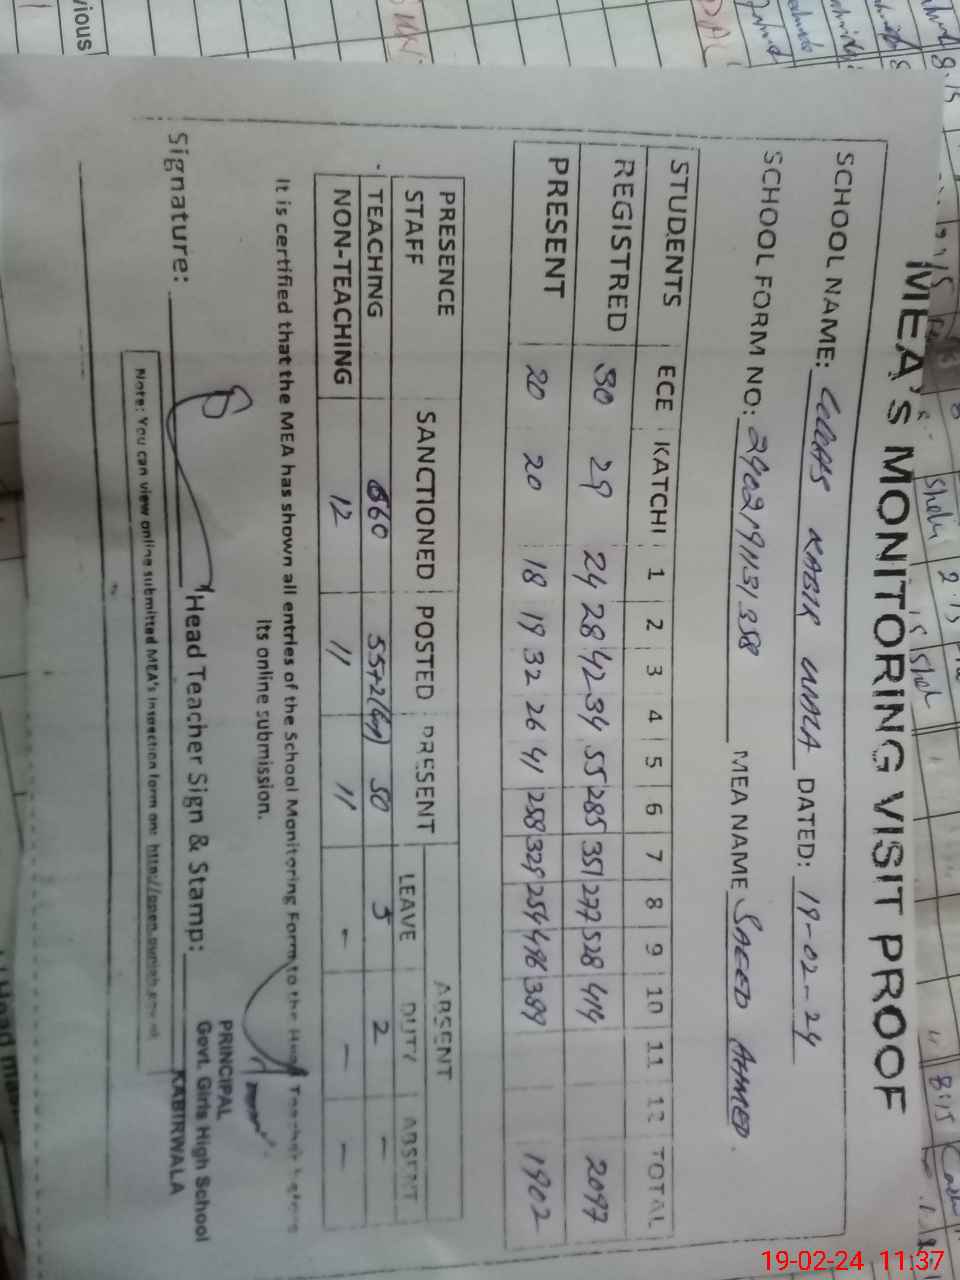 MEA's MONITORING VISIT PROOF
SCHOOL NAME: GGHS KABIR WALA DATED: 19-02-24
SCHOOL FORM NO: MEA NAME SAEED AHMED.
STUDENTS ECE KATCHI 1 2 3 4 5 6 7 8 9 10 11 12 TOTAL
REGISTRED 30 29 24 28 42 34 55 285 351 277 528 414 2097
PRESENT 20 20 18 19 32 26 41 258 329 254 486 399 1902
PRESENCE STAFF SANCTIONED POSTED PRESENT ABSENT
LEAVE DUTY ABSENT
TEACHING 60 55+2 50 5 2 -
NON-TEACHING 12 11 11 - - -
It is certified that the MEA has shown all entries of the School Monitoring Form to the Head Teacher before
its online submission.
Signature: Head Teacher Sign & Stamp:
PRINCIPAL
Govt. Girls High School
KABIRWALA
Note: You can view online submitted MEA's inspection form on: http://open.punjab.gov.pk
19-02-24 11:37